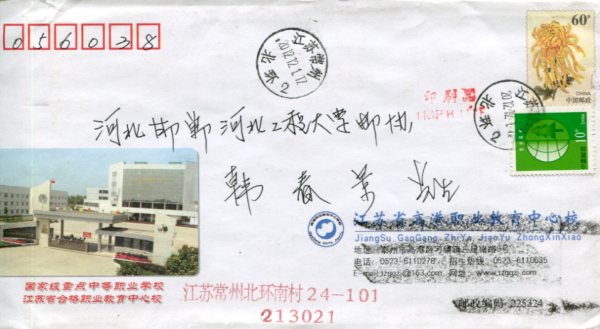 056038
江苏常州
2012.12.1.17
北环乙
60分
CHINA
中国邮政
印刷品
10分
中国邮政
CHINA
河北邯郸河北工程大学邮协
韩春景 先生
江苏省高港职业教育中心校
JiangSu GaoGang ZhiYe JiaoYu ZhongXinXiao
电话：0523-6110278
0523-6110635
E-mail:tzggz
网址：www.tzggz.com
邮政编码：225324
国家级重点中等职业学校
江苏省合格职业教育中心校
江苏常州北环南村24-101
213021